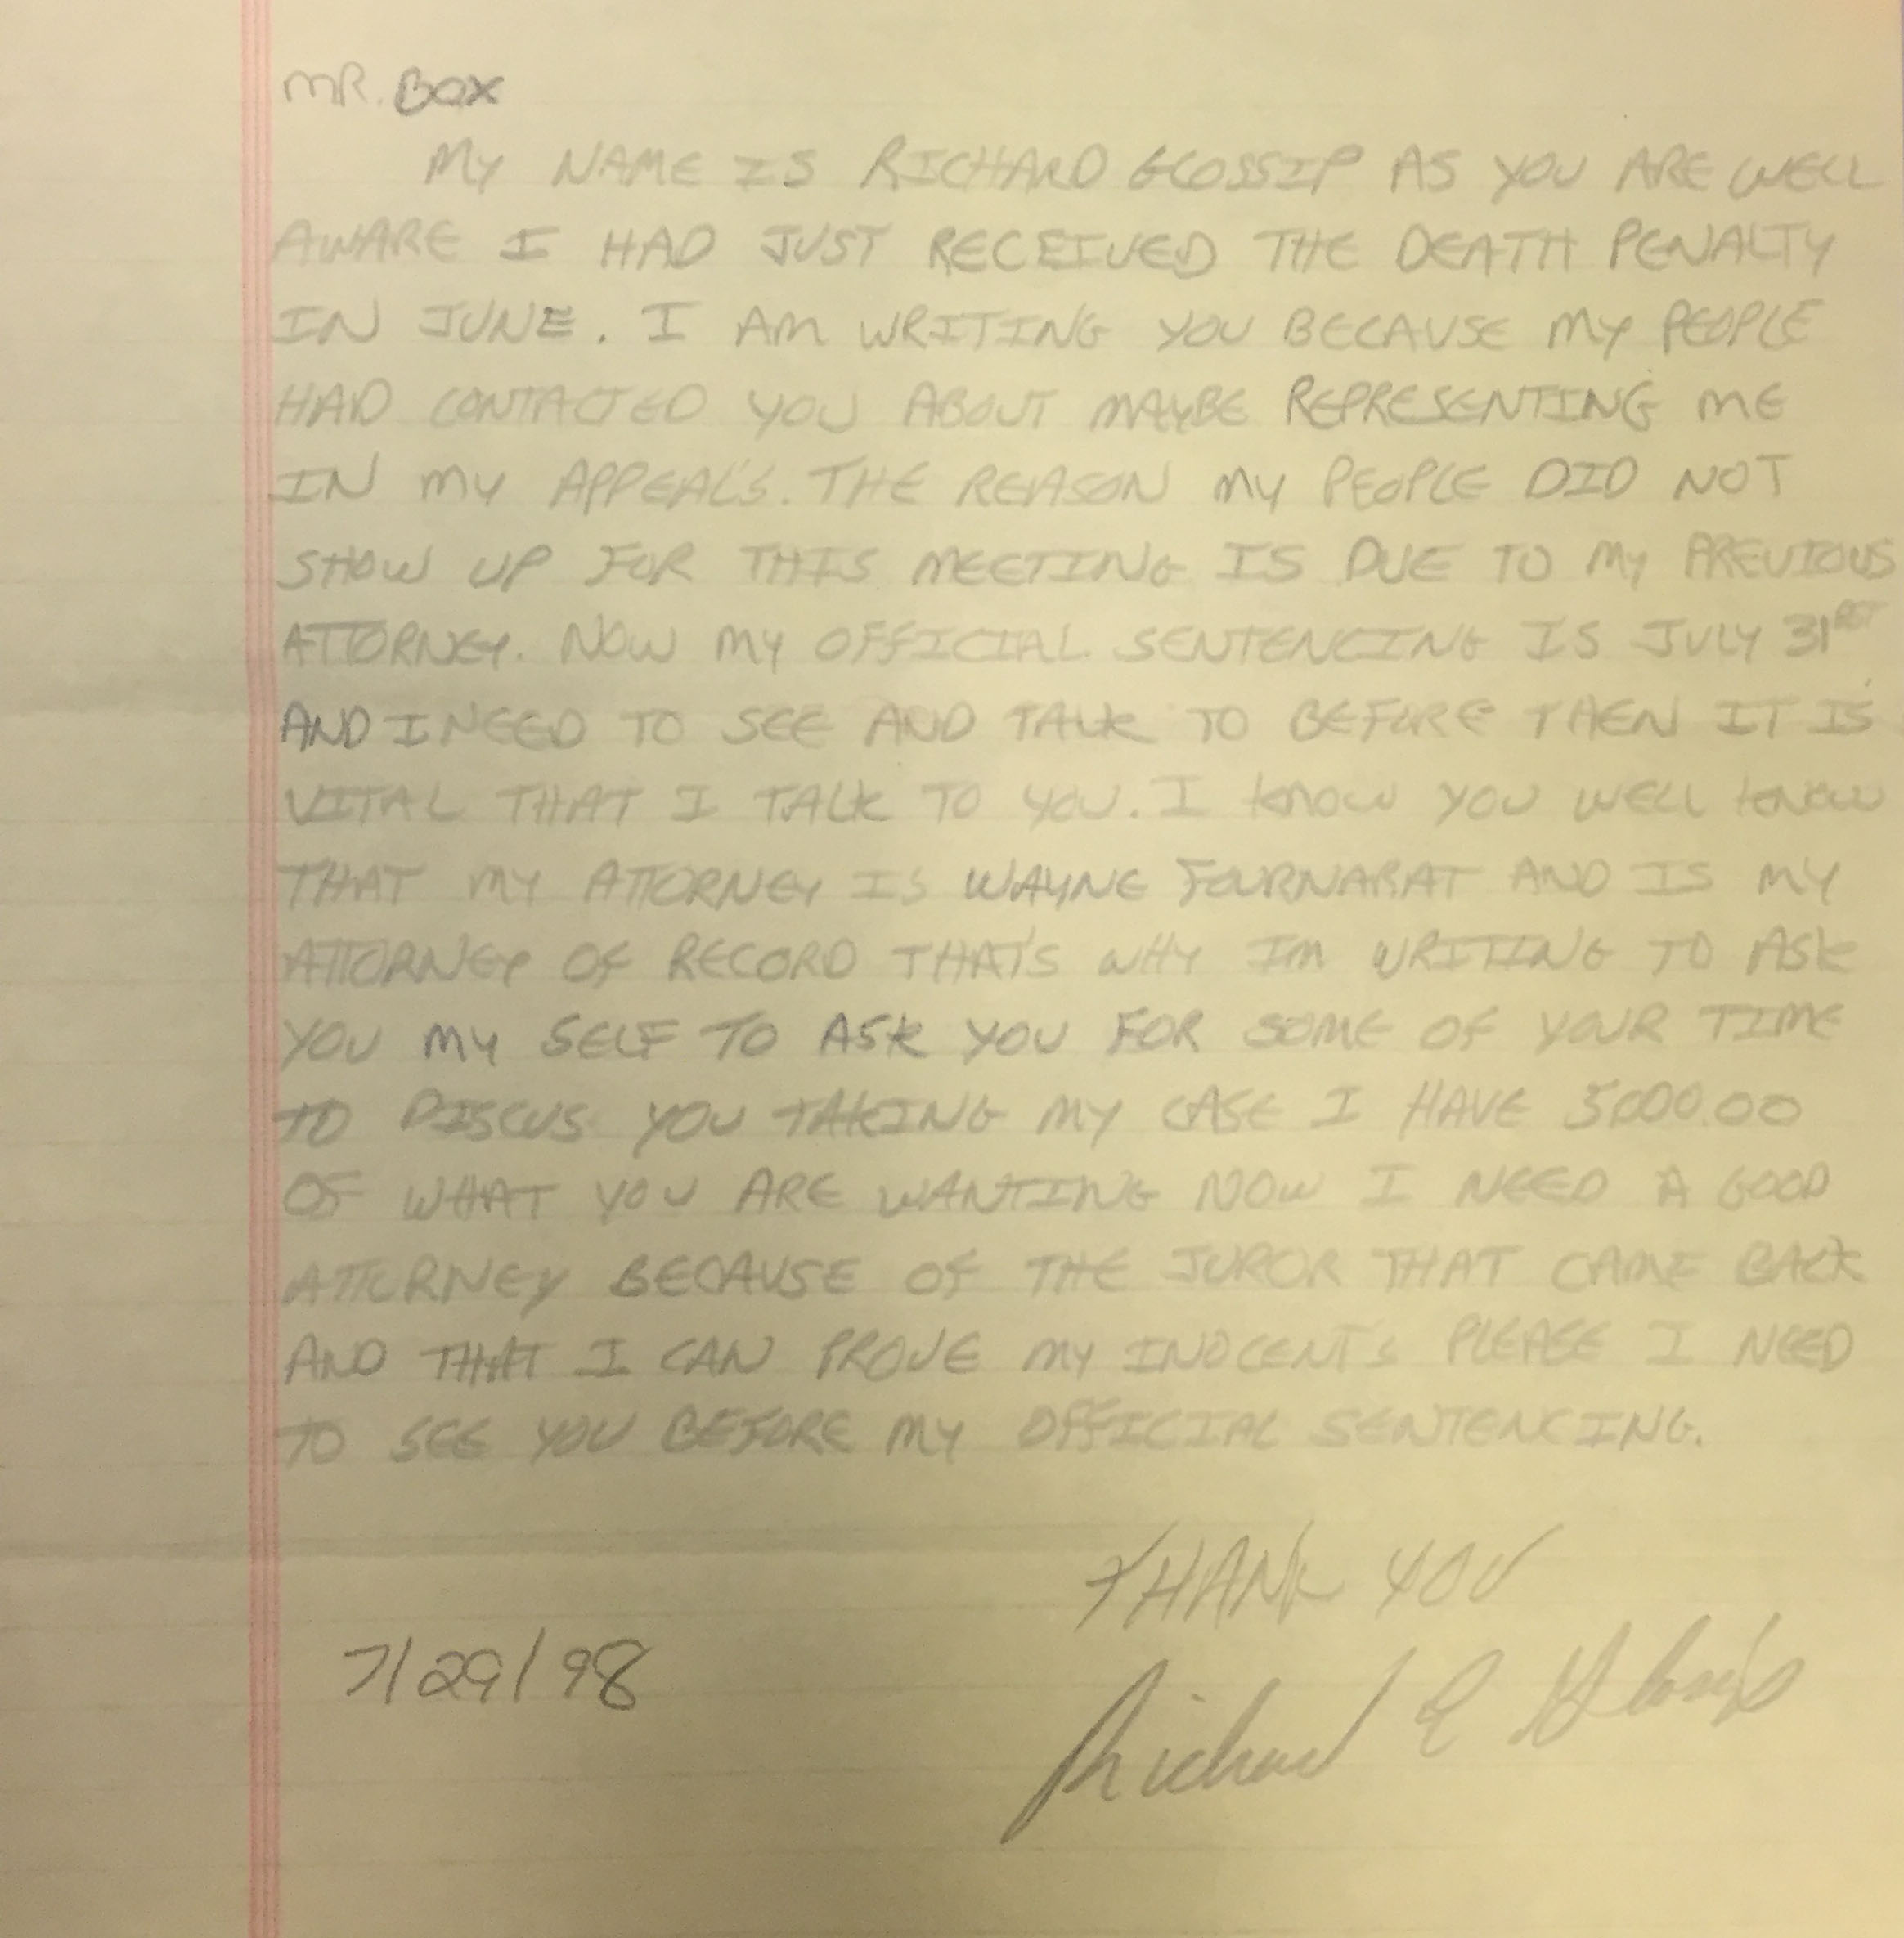 MR. BOX
MY NAME IS RICHARD GLOSSIP AS YOU ARE WELL
AWARE I HAD JUST RECEIVED THE DEATH PENALTY
IN JUNE. I AM WRITING YOU BECAUSE MY PEOPLE
HAD CONTACTED YOU ABOUT MAYBE REPRESENTING ME
IN MY APPEAL'S. THE REASON MY PEOPLE DID NOT
SHOW UP FOR THIS MEETING IS DUE TO MY PREVIOUS
ATTORNEY. NOW MY OFFICIAL SENTENCING IS JULY 31RST
AND I NEED TO SEE AND TALK TO BEFORE THEN IT IS
VITAL THAT I TALK TO YOU. I KNOW YOU WELL KNOW
THAT MY ATTORNEY IS WAYNE FOURNARAT AND IS MY
ATTORNEY OF RECORD THAT'S WHY IM WRITING TO ASK
YOU MY SELF TO ASK YOU FOR SOME OF YOUR TIME
TO DISCUS YOU TAKING MY CASE I HAVE 5,000.00
OF WHAT YOU ARE WANTING NOW I NEED A GOOD
ATTORNEY BECAUSE OF THE JUROR THAT CAME BACK
AND THAT I CAN PROVE MY INOCENT'S PLEASE I NEED
TO SEE YOU BEFORE MY OFFICIAL SENTENCING.
THANK YOU
7/29/98
Richard E Glossip